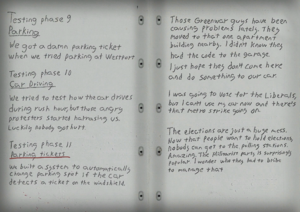 Testing phase 9
Parking
We got a damn parking ticket
when we tried parking at Westport
Testing phase 10
Car Driving
We tried to test how the car drives
during rush hour, but those angry
protesters started harrassing us.
Luckily nobody got hurt
Testing phase 11
Parking tickets
We built a system to automatically
change parking spot if the car
detects a ticket on the windshield.
Those Greenwar guys have been
causing problems lately. They
moved to that one apartment
building nearby. I didn't know they
had the code to the garage.
I just hope they don't come here
and do something to our car.
I was going to vote for the Liberals,
but I can't use my car now and there's
that metro strike going on.
The elections are just a huge mess.
Now that people want to hold elections,
nobody can get to the polling stations.
Amazing. The Millionaire party is surprisingly
popular. I wonder who they had to bribe
to manage that